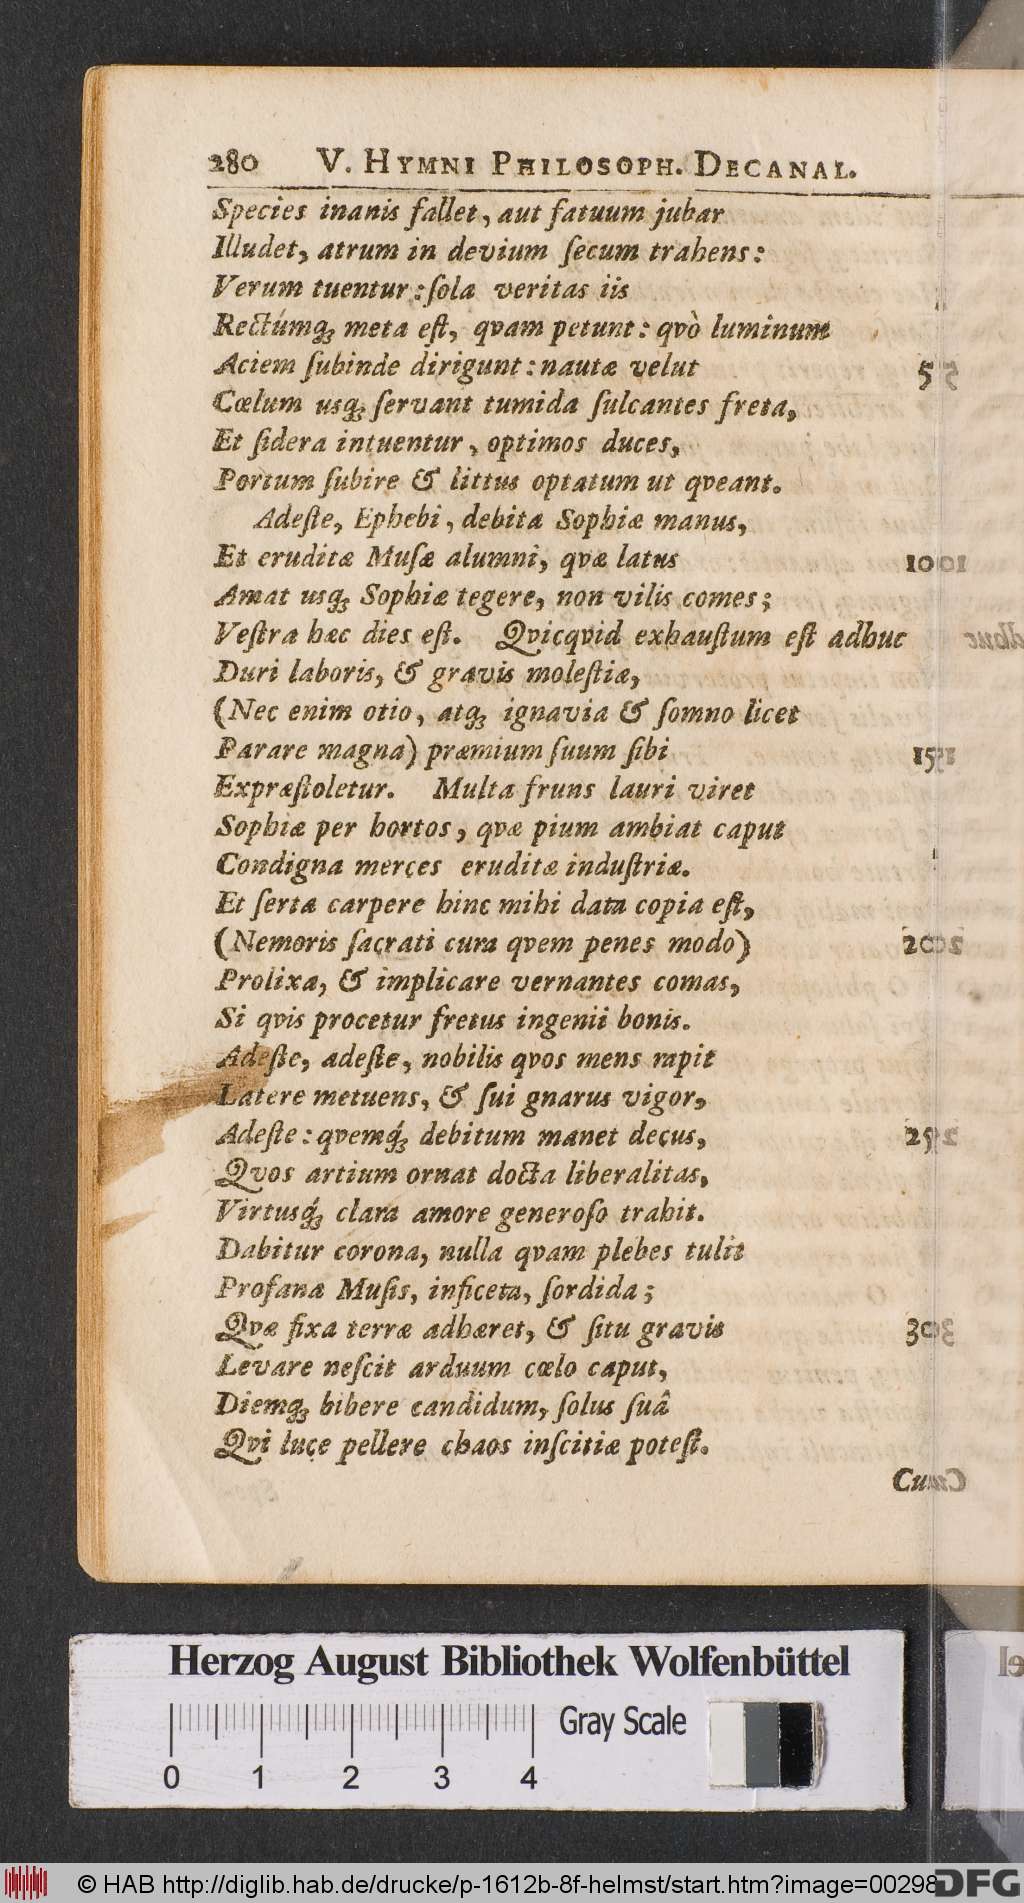 280 V. HYMNI PHILOSOPH. DECANAL.
Species inanis fallet, aut fatuum jubar
Illudet, atrum in devium ſecum trahens:
Verum tuentur: ſola veritas iis
Rectúmq; meta eſt, qvam petunt: qvò luminum
Aciem ſubinde dirigunt: nautæ velut 5
Cœlum usq; ſervant tumida ſulcantes freta,
Et ſidera intuentur, optimos duces,
Portum ſubire & littus optatum ut qveant.
Adeſte, Ephebi, debita Sophiæ manus,
Et eruditæ Muſæ alumni, qvæ latus 10
Amat usq; Sophiæ tegere, non vilis comes;
Veſtra hæc dies eſt. Qvicqvid exhauſtum eſt adhuc
Duri laboris, & gravis moleſtiæ,
(Nec enim otio, atq; ignavia & ſomno licet
Parare magna) præmium ſuum ſibi 15
Expræſtoletur. Multa fruns lauri viret
Sophiæ per hortos, qvæ pium ambiat caput
Condigna merces eruditæ induſtriæ.
Et ſerta carpere hinc mihi data copia eſt,
(Nemoris ſacrati cura qvem penes modo) 20
Prolixa, & implicare vernantes comas,
Si qvis procetur fretus ingenii bonis.
Adeſte, adeſte, nobilis qvos mens rapit
Latere metuens, & ſui gnarus vigor,
Adeſte: qvemq́; debitum manet decus, 25
Qvos artium ornat docta liberalitas,
Virtusq́; clara amore generoſo trahit.
Dabitur corona, nulla qvam plebes tulit
Profana Muſis, inficeta, ſordida;
Qvæ fixa terræ adhæret, & ſitu gravis 30
Levare neſcit arduum cœlo caput,
Diemq; bibere candidum, ſolus ſuâ
Qvi luce pellere chaos inſcitiæ poteſt.
Cum
Herzog August Bibliothek Wolfenbüttel
Gray Scale
0 1 2 3 4
© HAB http://diglib.hab.de/drucke/p-1612b-8f-helmst/start.htm?image=00298
DFG